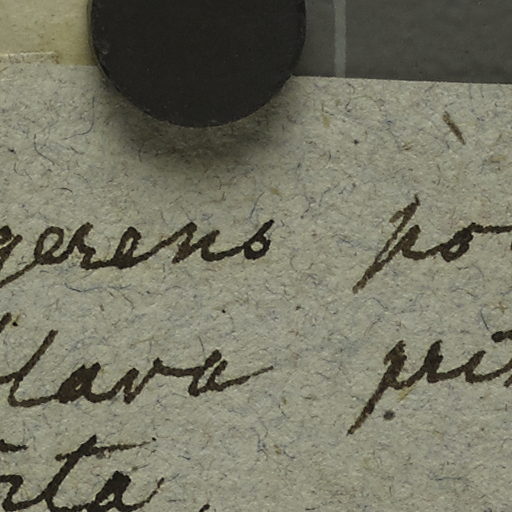 gerens po
flava pri
rta